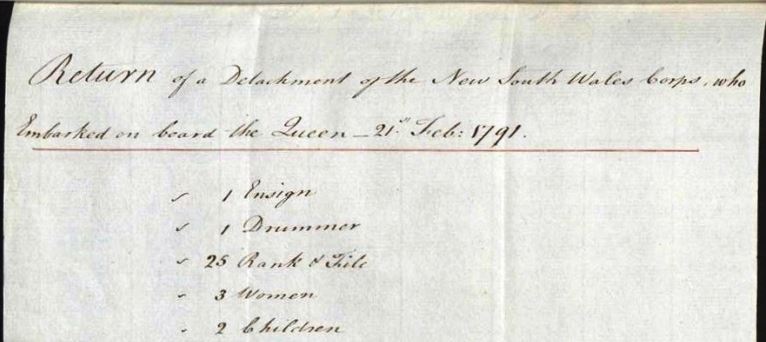 Return of a Detachment of the New South Wales Corps, who
Embarked on board the Queen – 21st Feb: 1791.
" 1 Ensign
" 1 Drummer
" 25 Rank & File
" 3 Women
" 2 Children